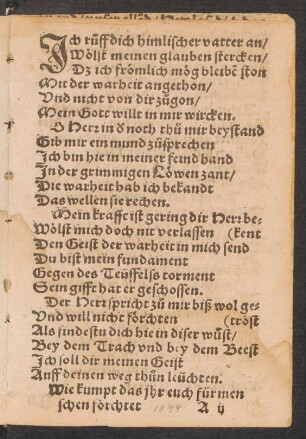 Ich rüff dich himlischer vatter an/
Wölst meinen glauben stercken/
Dz ich frömlich mög bleibē ston
Mit der warheit angethon/
Vnd nicht von dir zůgon/
Mein Gott willt in mir wircken.
O Herr in ď noth thů mir beystand
Gib mir ein mund zůsprechen
Ich bin hie in meiner feind hand
In der grimmigen Löwen zant/
Die warheit hab ich bekandt
Das wellen sie rechen.
Mein krafft ist gering dir Herr be-
Wölst mich doch nit verlassen (kent
Den Geist der warheit in mich send
Du bist mein fundament
Gegen des Teüffels torment
Sein gifft hat er geschossen.
Der Herr spricht zů mir biß wol ge-
Vnd will nicht förchten (tröst
Als findestu dich hie in diser wüst/
Bey dem Trach vnd bey dem Beest
Ich soll dir meinen Geist
Auff deinen weg thůn leüchten.
Wie kumpt das jhr euch für men
schen förchtet A ij